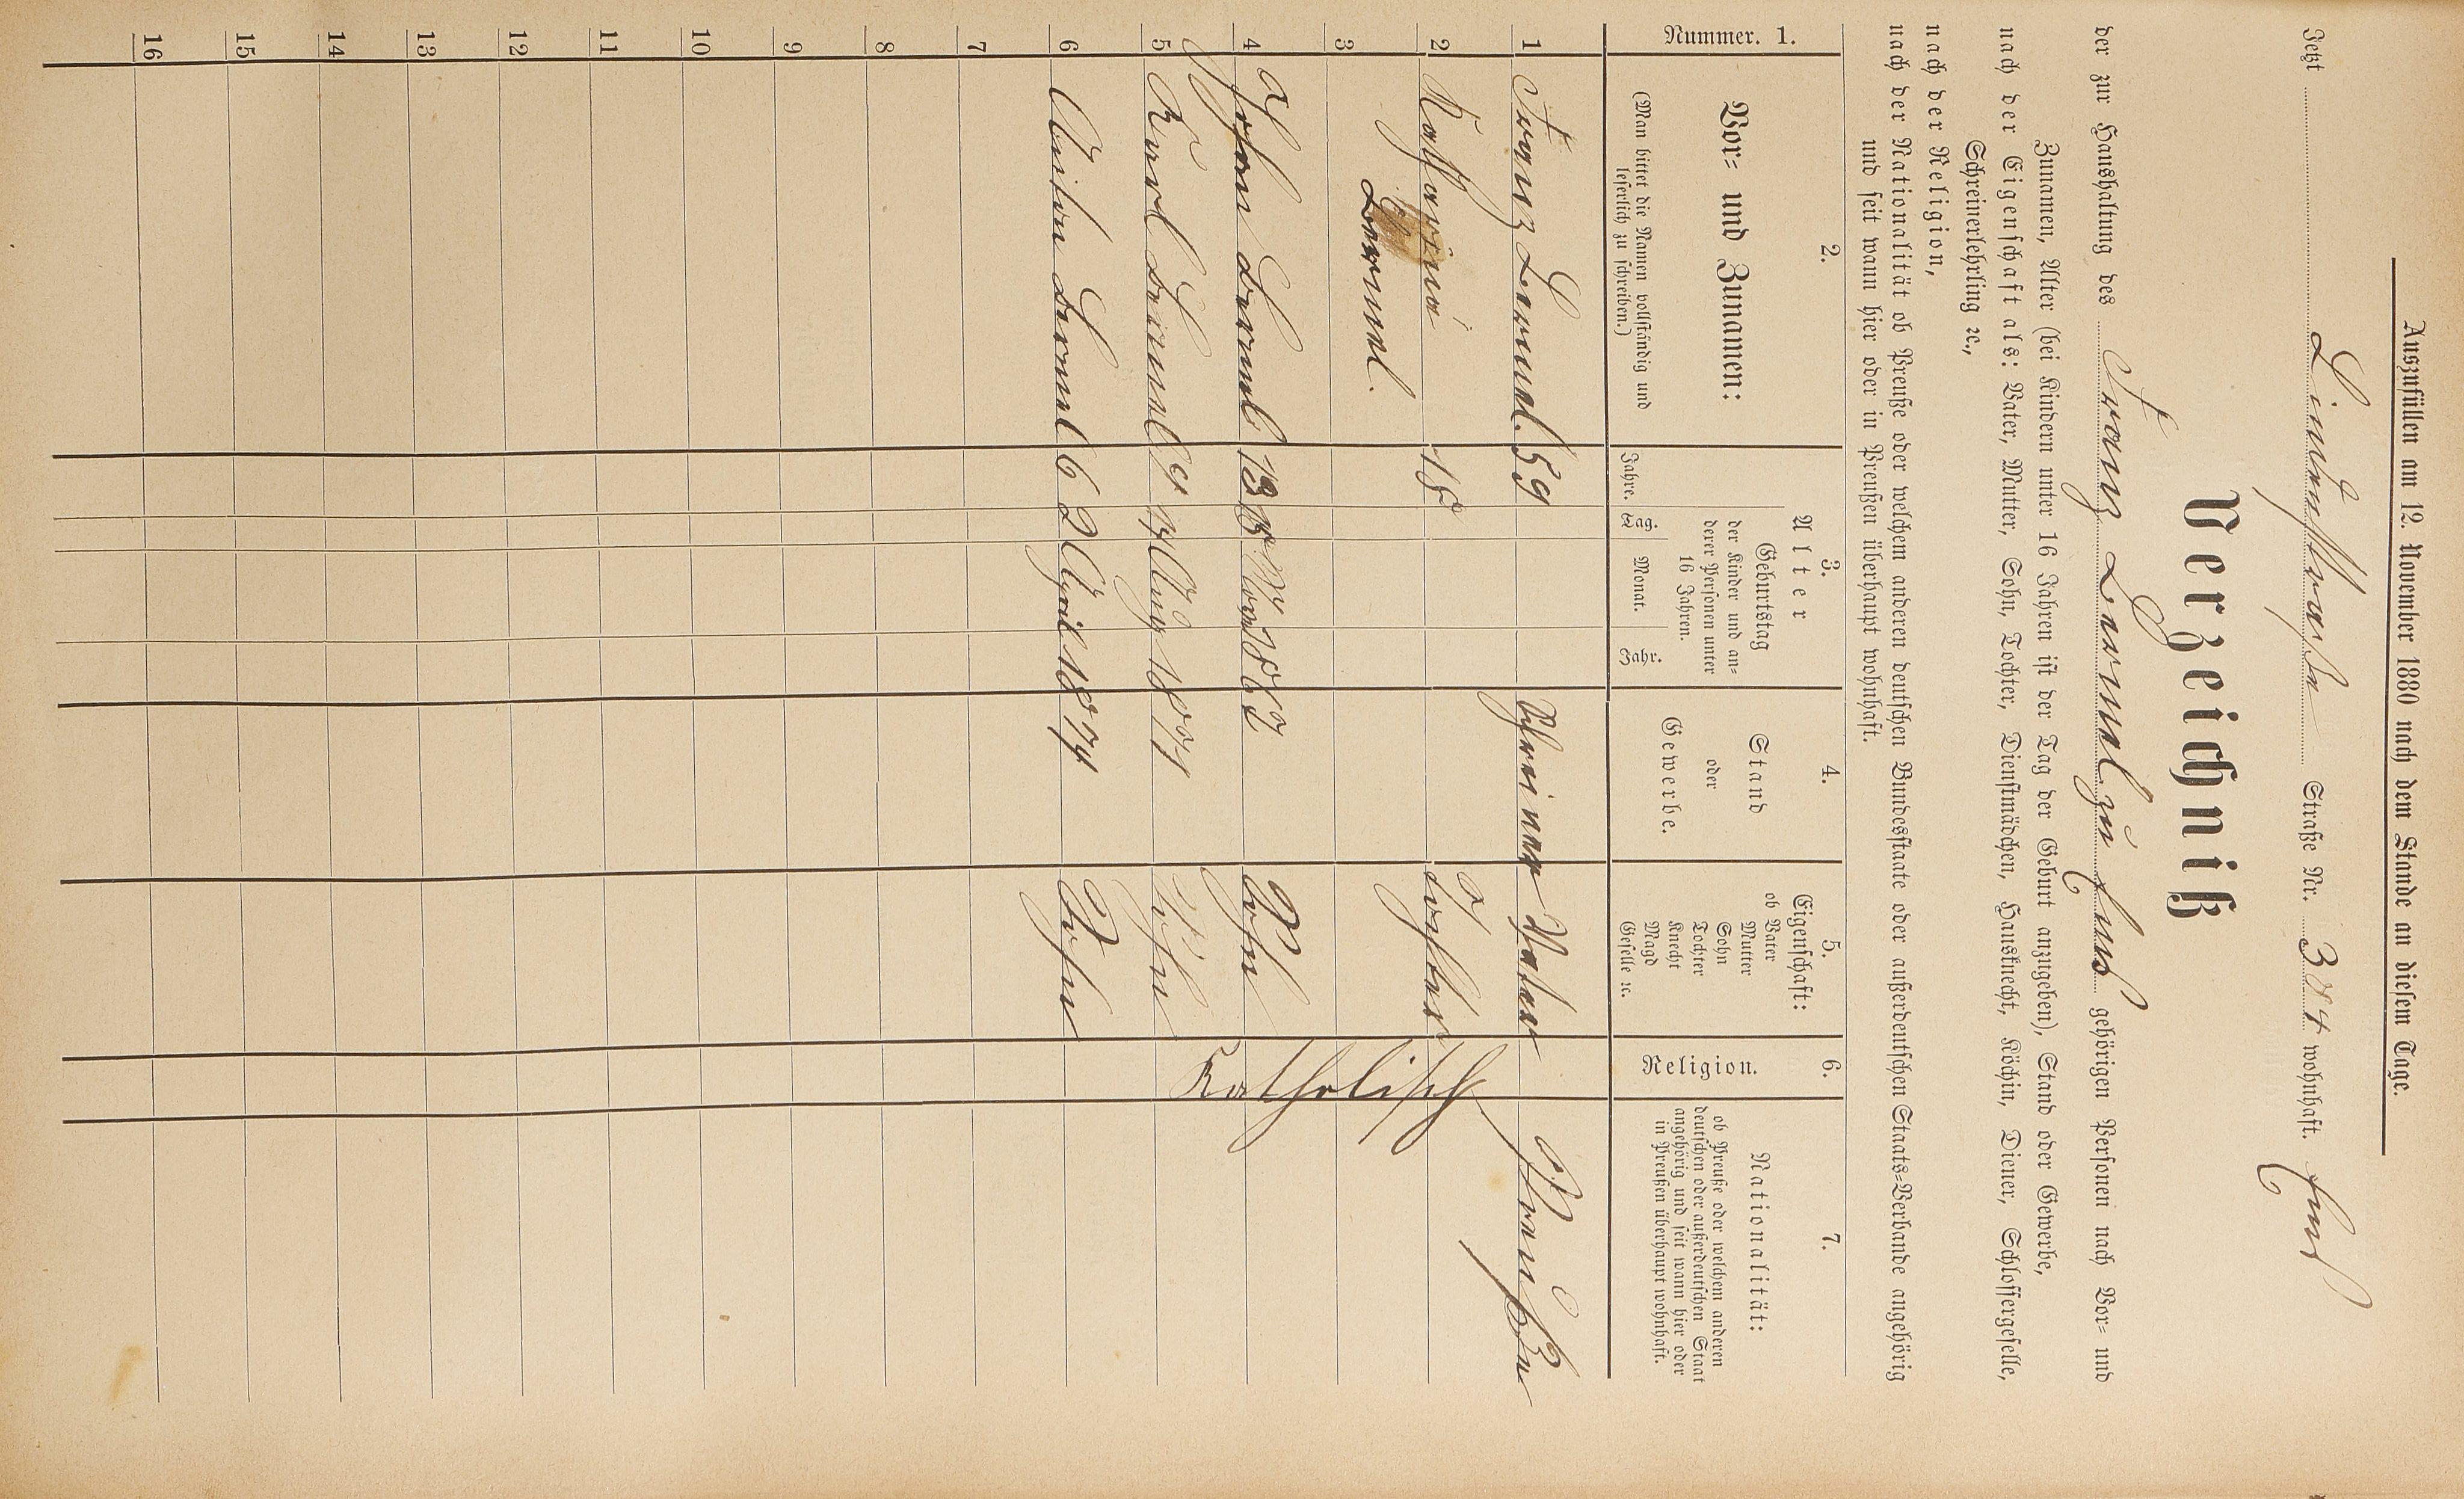 Auszufüllen am 12. November 1880 nach dem Stande an diesem Tage.
Jetzt Lindenstraße Straße Nr. 384 wohnhaft.
Verzeichniß
der zur Haushaltung des Franz Lermel zu gehörigen Personen nach Vor= und
Zunamen, Alter (bei Kindern unter 16 Jahren ist der Tag der Geburt anzugeben), Stand oder Gewerbe,
nach der Eigenschaft als: Vater, Mutter, Sohn, Tochter, Dienstmädchen, Hausknecht, Köchin, Diener, Schlossergeselle,
Schreinerlehrling ec.,
nach der Religion,
nach der Nationalität ob Preuße oder welchem anderen deutschen Bundesstaate oder außerdeutschen Staats=Verbande angehörig
und seit wann hier oder in Preußen überhaupt wohnhaft.
Nummer. 1.
2.
Vor= und Zunamen:
(Man bittet die Namen vollständig und
leserlich zu schreiben.)
3.
Alter
Jahre.
Geburtstag
der Kinder und an=
derer Personen unter
16 Jahren.
Tag. Monat. Jahr.
4.
Stand
oder
Gewerbe.
5.
Eigenschaft:
ob Vater
Mutter
Sohn
Tochter
Knecht
Magd
Geselle ec.
6.
Religion.
7.
Nationalität:
ob Preuße oder welchem anderen
deutschen oder außerdeutschen Staat
angehörig und seit wann hier oder
in Preußen überhaupt wohnhaft.
1 Franz Lermel. 59 Schreiner Vater Preußen
2 Katharina 18 Tochter
3 Lermel.
Katholisch
4 Johan Lermel 13 1867 Sohn
5 Karl Lermel 9 14 Aug 1871 Sohn
6 Anton Lermel 6 2 April 1874 Sohn
7
8
9
10
11
12
13
14
15
16